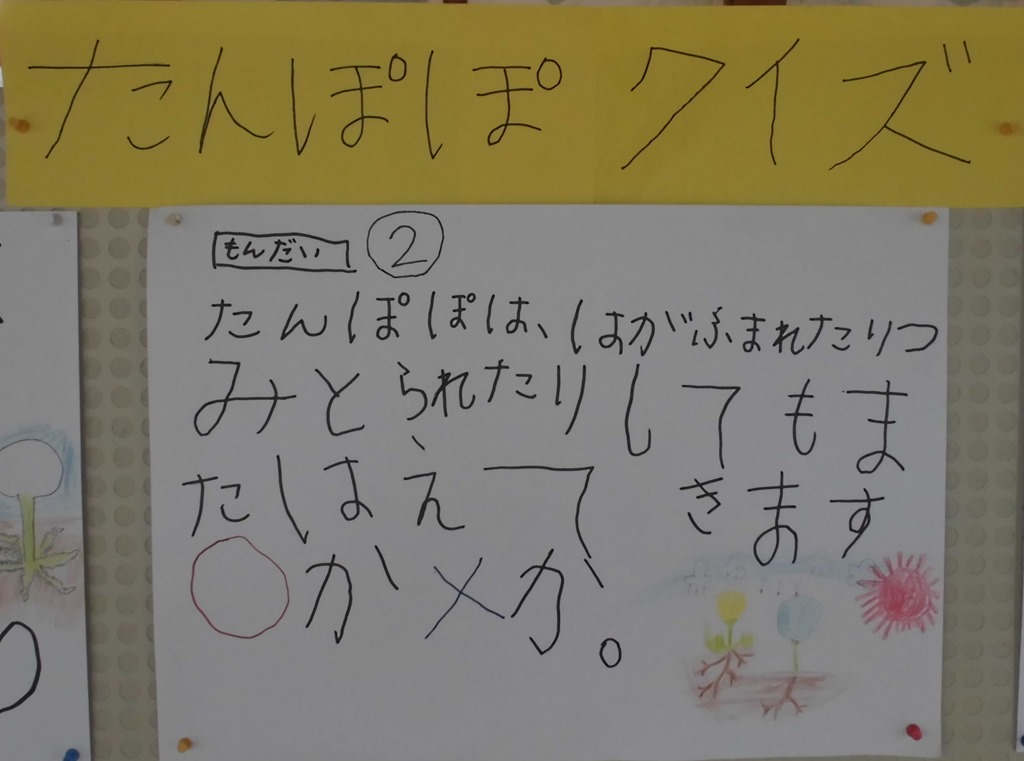 たんぽぽクイズ
もんだい ②
たんぽぽは、はがふまれたりつ
みとられたりしてもま
たはえてきます
○か×か。